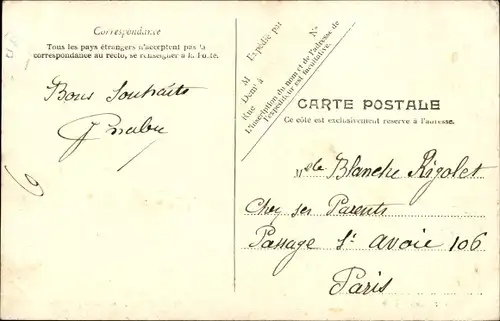 Correspondance
Tous les pays étrangers n'acceptent pas la
correspondance au recto, se renseigner à la Poste.
Bons Souhaits
Expédié par
M
Demt à
Rue
No
L'inscription du nom et de l'adresse de
l'expéditeur est facultative.
CARTE POSTALE
Ce côté est exclusivement réservé à l'adresse.
Mlle Blanche Rigolet
Chez ses Parents
Passage St avoie 106
Paris